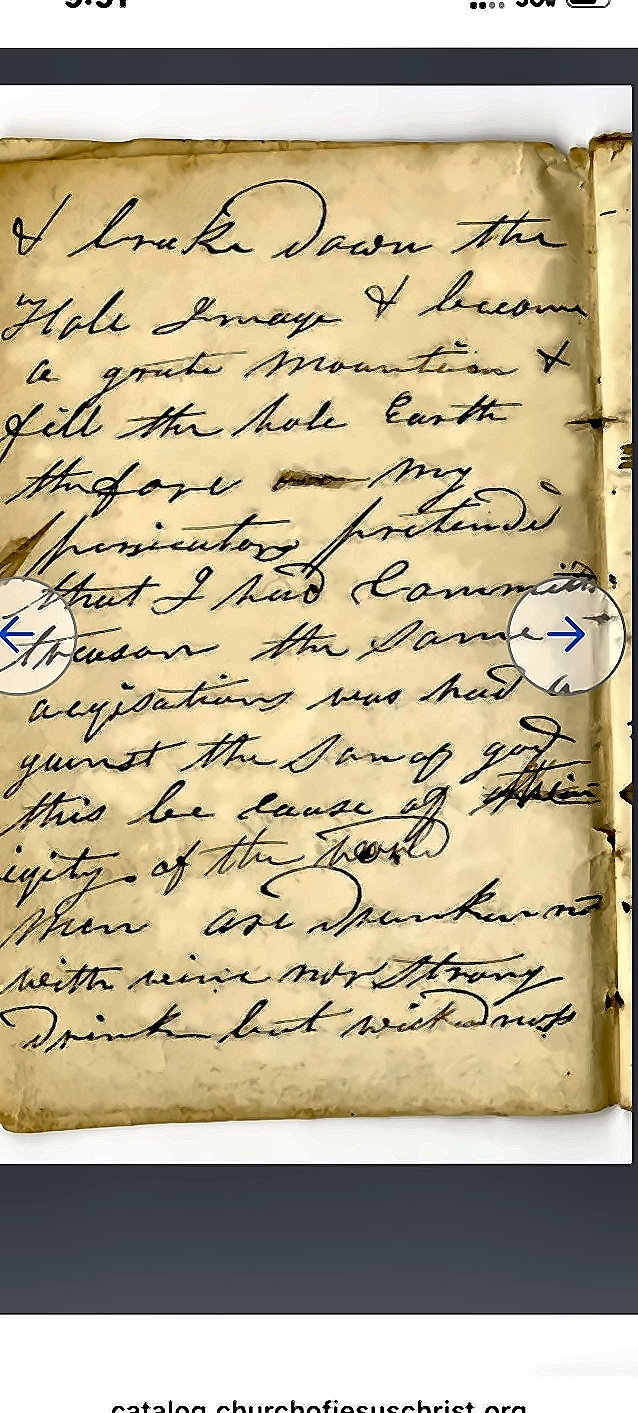 & brake down the
Hole Image & become
a grate mountain &
fill the hole Earth
thefore my
persicutors pretend
that I had Committ
treason the same
acqisations was had a
gainst the Son of god
this be cause of
iqity of the world
Men are drunken not
with wine nor Strong
Drink but wickedness
catalog.churchofjesuschrist.org